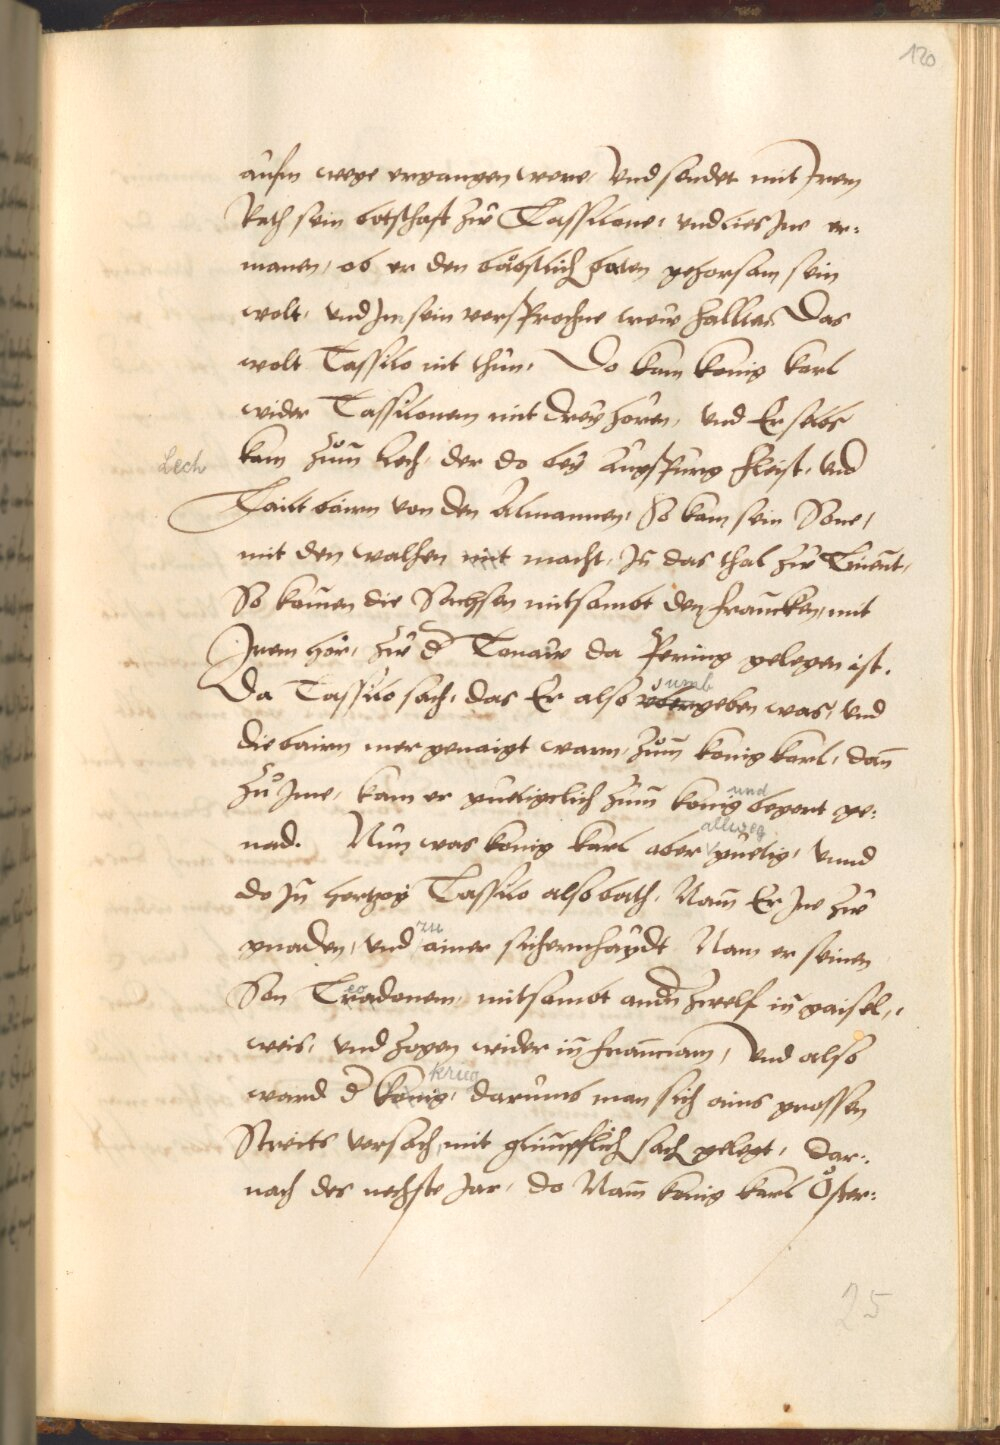 120
aufm wege ergangen were, Vnd sendet mit Irem
Rath sein botschaft zw Tassilone, vnd lies Ine er:
manen, ob er den bäbstlich boten gehorsam sein
wolt, vnd Im sein versprochne trew hallten Das
wolt Tassilo nit thun, Do kam konig karl
wider Tassilonem mit drey hören, vnd Er selbs
Lech
kam zum Lech, der do bey Augspurg fleist, vnd
Tailt bairn von den Almannen, So kam sein Sone,
mit den walhen mit macht, In das thal zw Trient,
So kamen die Sachsen mitsambt den francken, mit
Irem hör, zw d Tonaw da Pering gelegen ist.
umb
Da Tassilo sach, das Er also vbergeben was, vnd
die bairn mer genaigt warn, zum konig karl, dan
und
zu Ime, kam er guetigclich zum konig begert ge:
allweg
nad. Nun was konig karl aber guetig, vnnd
do In hertzog Tassilo also bath, Nam Er Ine zw
zu
gnaden, vnd ainer sichernhaydt Nam er seinen
eo
Son Tradonem, mitsambt andn zwelf in gaisel,
weis, vnd zogen wider in franciam, Vnd also
krieg
ward d konig, darumb man sich ains grossen
Streits versach, mit glimpfflich sach gelegt, dar:
nach des nechste Jar, do Nam konig karl Öster:
25